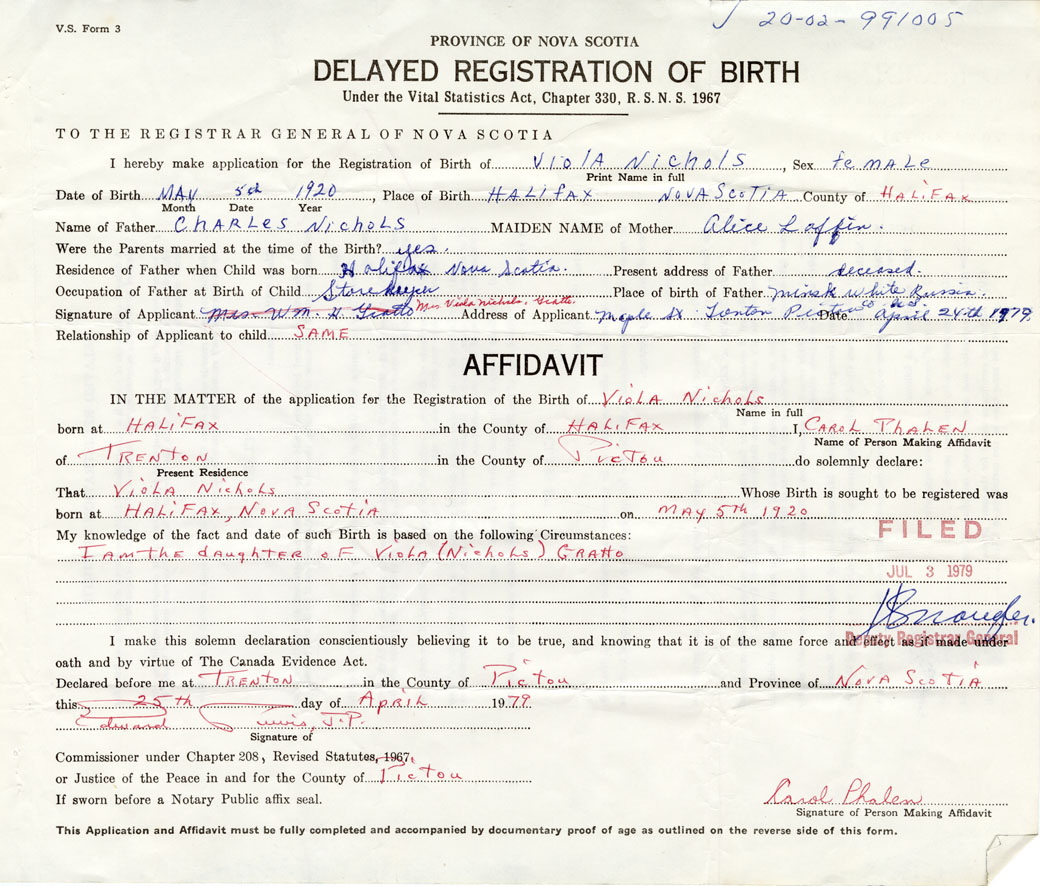 V.S. Form 3
20-02-991005
PROVINCE OF NOVA SCOTIA
DELAYED REGISTRATION OF BIRTH
Under the Vital Statistics Act, Chapter 330, R. S. N. S. 1967
TO THE REGISTRAR GENERAL OF NOVA SCOTIA
I hereby make application for the Registration of Birth of Viola Nichols, Sex female
Print Name in full
Date of Birth MAY 5th 1920, Place of Birth HALifax Nova Scotia County of HALiFAx
Month Date Year
Name of Father CHARLes Nichols MAIDEN NAME of Mother Alice Laffin.
Were the Parents married at the time of the Birth? yes.
Residence of Father when Child was born Halifax Nova Scotia. Present address of Father deceased.
Occupation of Father at Birth of Child Store keeper Place of birth of Father Minsk white Russia.
Signature of Applicant Mrs. WM. H. Gratto Mrs Viola Nichols. Gratto. Address of Applicant Maple St Trenton Pictou Co N.S. Date April 24th 1979
Relationship of Applicant to child SAME
AFFIDAVIT
IN THE MATTER of the application for the Registration of the Birth of Viola Nichols
Name in full
born at HALiFAx in the County of HALiFAx I, CAROL PHALEN
Name of Person Making Affidavit
of TRENTON in the County of PicTou do solemnly declare:
Present Residence
That Viola Nichols Whose Birth is sought to be registered was
born at HALiFAx, Nova Scotia on MAY 5th 1920
My knowledge of the fact and date of such Birth is based on the following Circumstances:
I am the daughter of Viola (Nichols) Gratto
FILED
JUL 3 1979
Deputy Registrar General
I make this solemn declaration conscientiously believing it to be true, and knowing that it is of the same force and effect as if made under
oath and by virtue of The Canada Evidence Act.
Declared before me at TRENTON in the County of Pictou and Province of Nova Scotia
this 25th day of April 1979
Edward Lewis, J.P.
Signature of
Commissioner under Chapter 208, Revised Statutes, 1967.
or Justice of the Peace in and for the County of Pictou
If sworn before a Notary Public affix seal.
Carol Phalen
Signature of Person Making Affidavit
This Application and Affidavit must be fully completed and accompanied by documentary proof of age as outlined on the reverse side of this form.